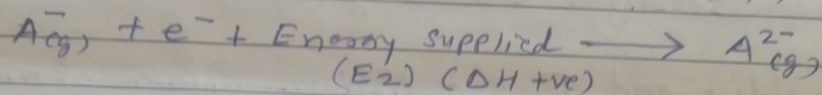 A⁻(g) + e⁻ + Energy supplied ⟶ A²⁻(g)
(E2) (ΔH +ve)